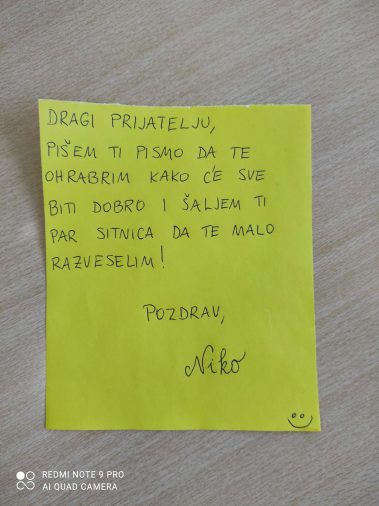 DRAGI PRIJATELJU,
PIŠEM TI PISMO DA TE
OHRABRIM KAKO ĆE SVE
BITI DOBRO I ŠALJEM TI
PAR SITNICA DA TE MALO
RAZVESELIM!
POZDRAV,
Niko
REDMI NOTE 9 PRO
AI QUAD CAMERA